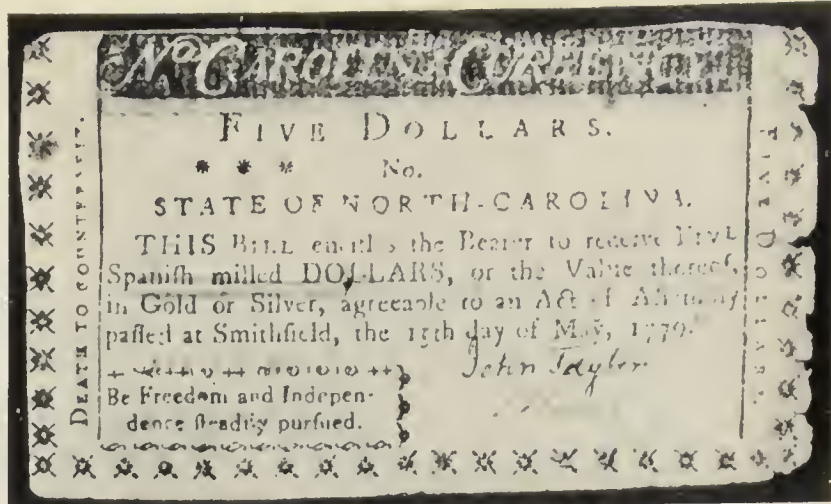 No CAROLINA CURRENCY.
FIVE DOLLARS.
* * * No.
STATE OF NORTH-CAROLINA.
THIS BILL entitles the Bearer to receive FIVE
Spaniſh milled DOLLARS, or the Value thereof,
in Gold or Silver, agreeable to an Act of Aſſembly
paſſed at Smithfield, the 15th day of May, 1779.
John Taylor
Be Freedom and Indepen-
dence ſteadily purſued.
DEATH TO COUNTERFEIT.
FIVE DOLLARS